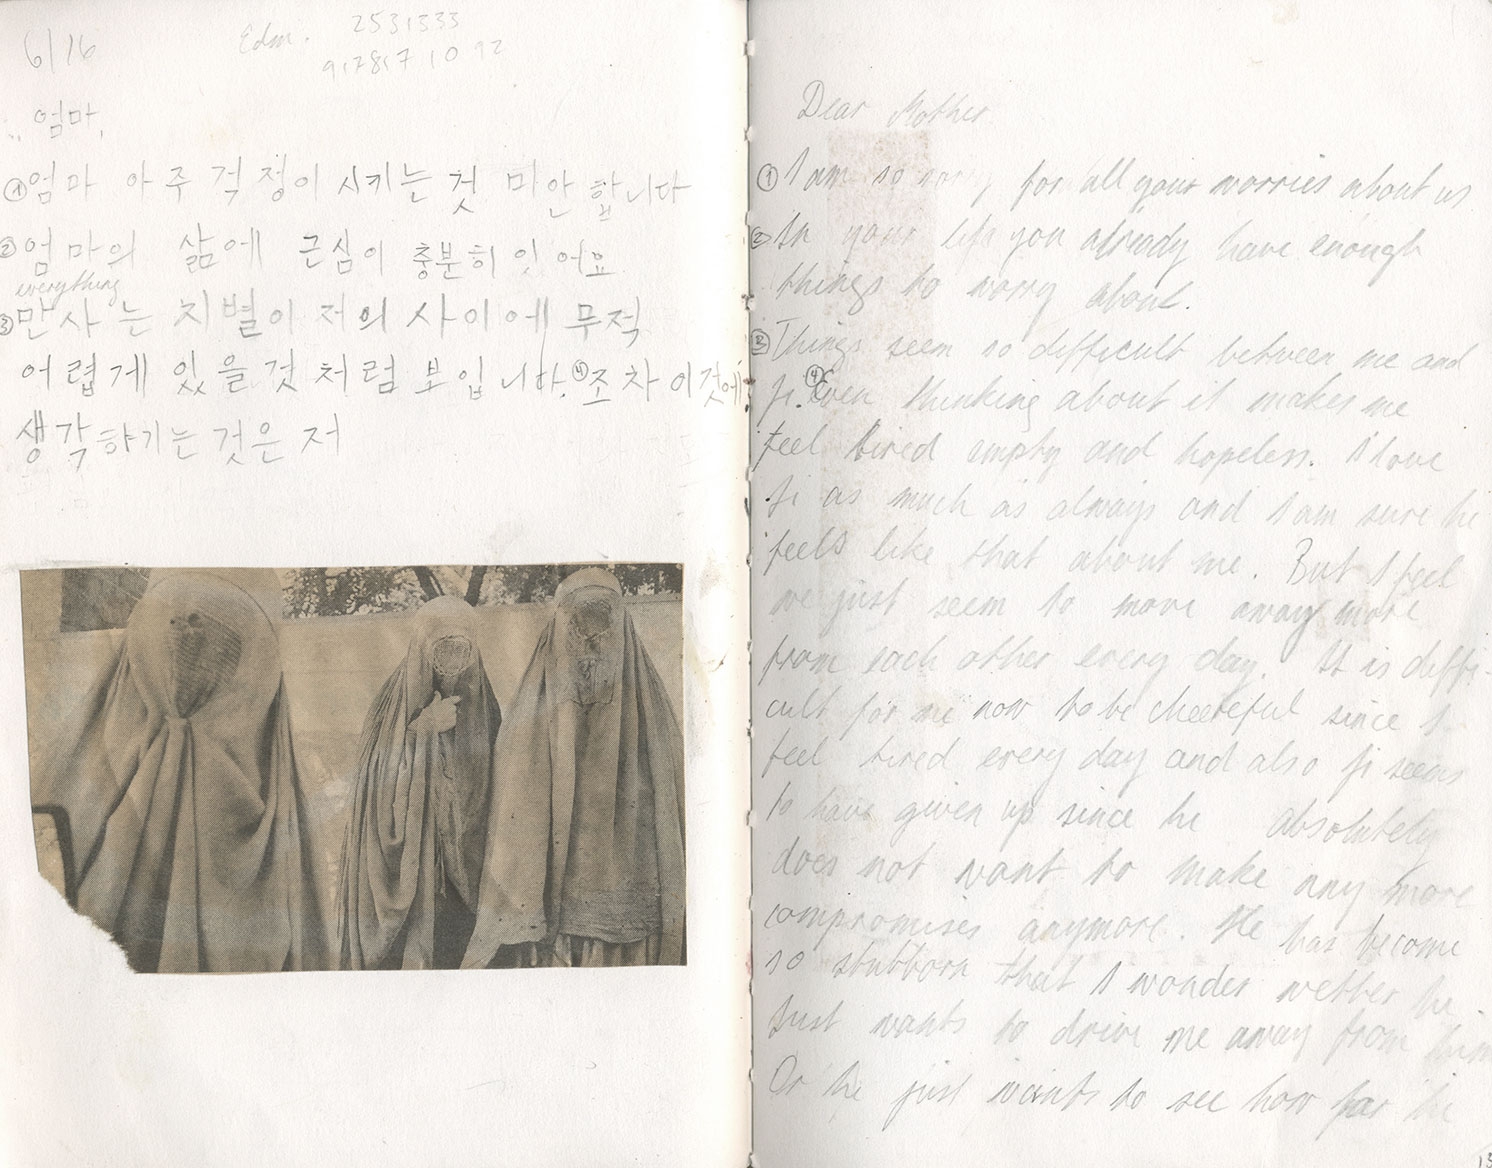 6/16
Edm. 2531333
917817 10 92
엄마,
① 엄마 아주 걱정이 시키는 것 미안 합니다
② 엄마의 삶에 근심이 충분히 잇 어요
everything
③ 만사는 치별이 저의 사이에 무적
어렵게 있을것 처럼 보입니다. ④ 조차 이것에
생각하기는 것은 저
Dear Mother
① I am so sorry for all your worries about us
② In your life you already have enough
things to worry about.
③ Things seem so difficult between me and
ji. ④ Even thinking about it makes me
feel tired empty and hopeless. I love
ji as much as always and I am sure he
feels like that about me. But I feel
we just seem to move away more
from each other every day. It is diffi-
cult for me now to be cheereful since I
feel tired every day and also ji seems
to have given up since he absolutely
does not want to make any more
compromises anymore. He has become
so stubborn that I wonder wether he
just wants to drive me away from him
Or he just wants to see how far he